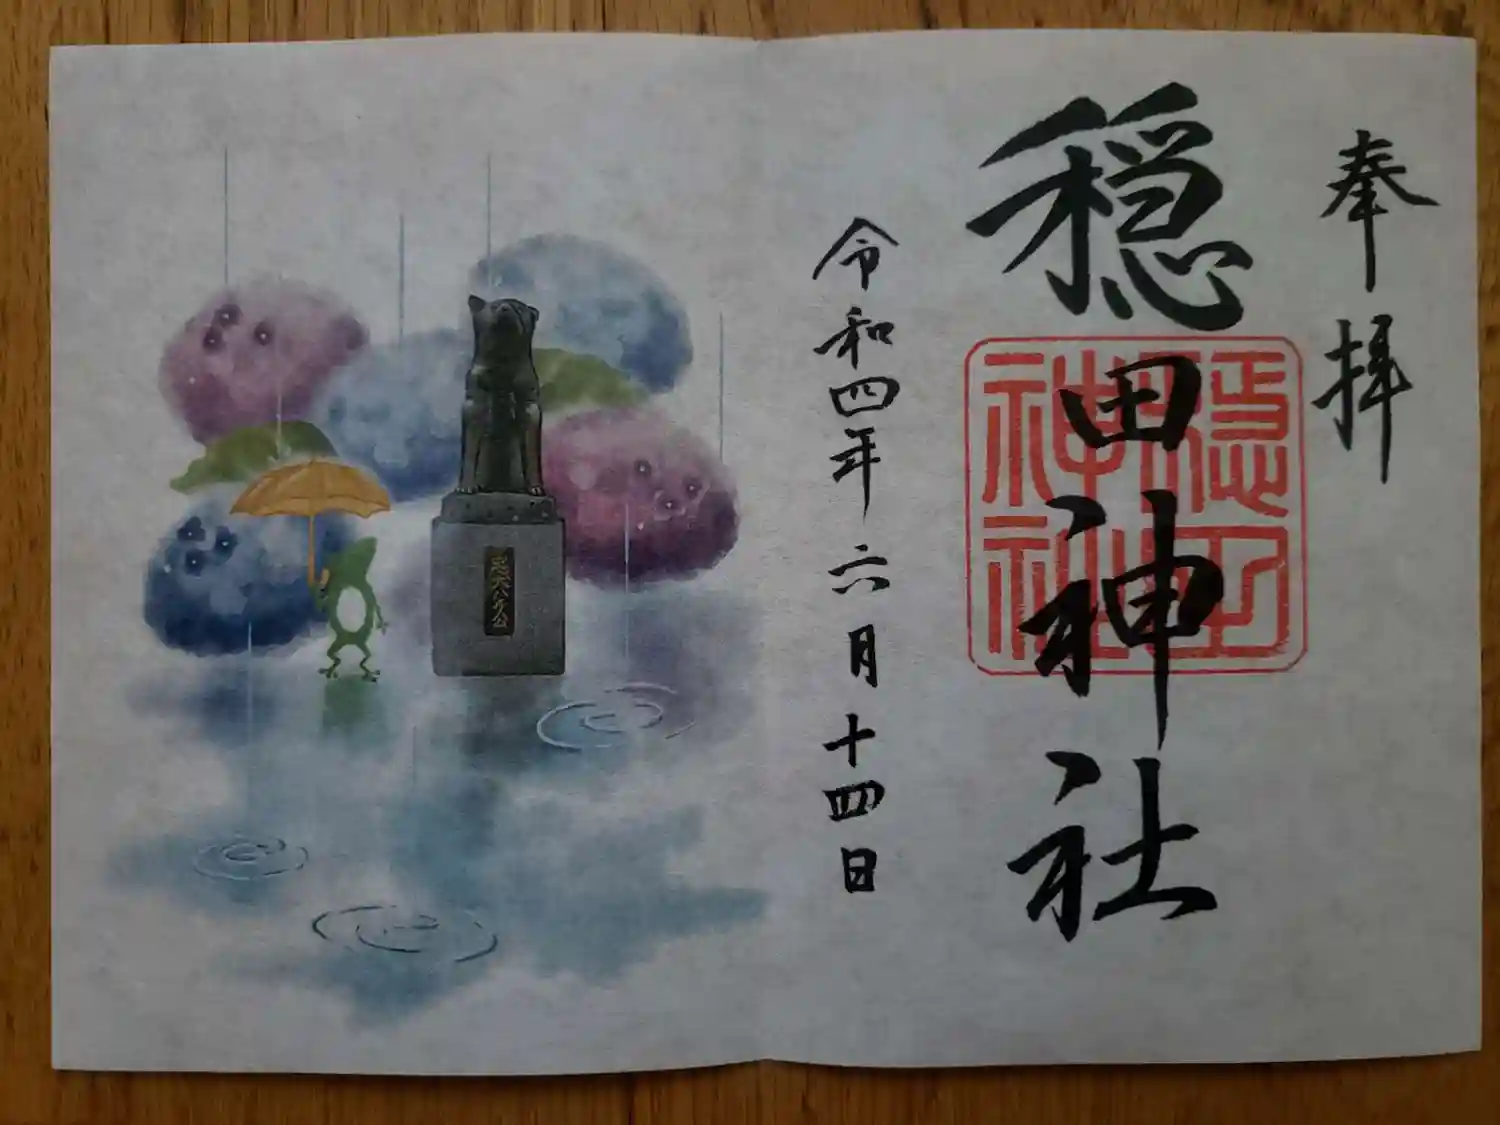 奉拝
穏田神社
穏田神社
令和四年六月十四日
忠犬ハチ公